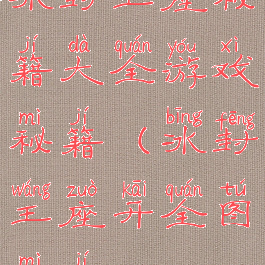 jí dà quán yóu xì
籍大全游戏
mì jí bīng fēng
秘籍（冰封
wáng zuò kāi quán tú
王座开全图
mì jí